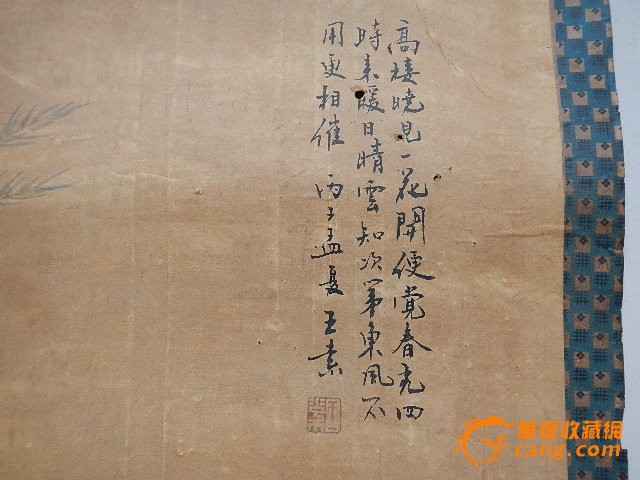 高楼曉見一花開便覺春光四
時來暖日晴雲知次第東風不
用更相催 丙子孟夏 王素
華豊收藏網
cang.com